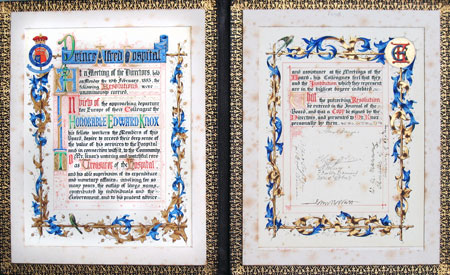 Prince Alfred Hospital
At a Meeting of the Directors, held
on Monday the 16th February, 1885, the
following Resolutions were
unanimously carried.
In view of the approaching departure
for Europe of their Colleague the
HONORABLE EDWARD KNOX
his fellow workers the Members of this
Board, desire to record their deep sense of
the value of his services to the Hospital
and in connection with it, to the Community
Mr. Knox's untiring and watchful care
as Treasurer of the Hospital
and his able supervision of its expenditure
and monetary affairs, involving for so
many years, the outlay of large sums,
contributed by individuals and the
Government, and his prudent advice
and assistance at the Meetings of the
Board, his Colleagues feel that they
and the Institution which they represent
are in the highest degree indebted
That the preceding Resolution
be entered in the Journal of the
Board, and that a Copy be signed by the
Directors, and presented to Mr. Knox
personally by them